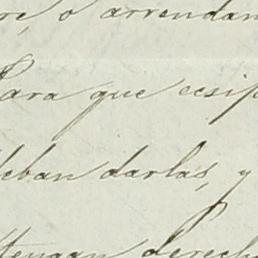 o arrendan
Para que ecsip
deban darlas, y
tengan derech